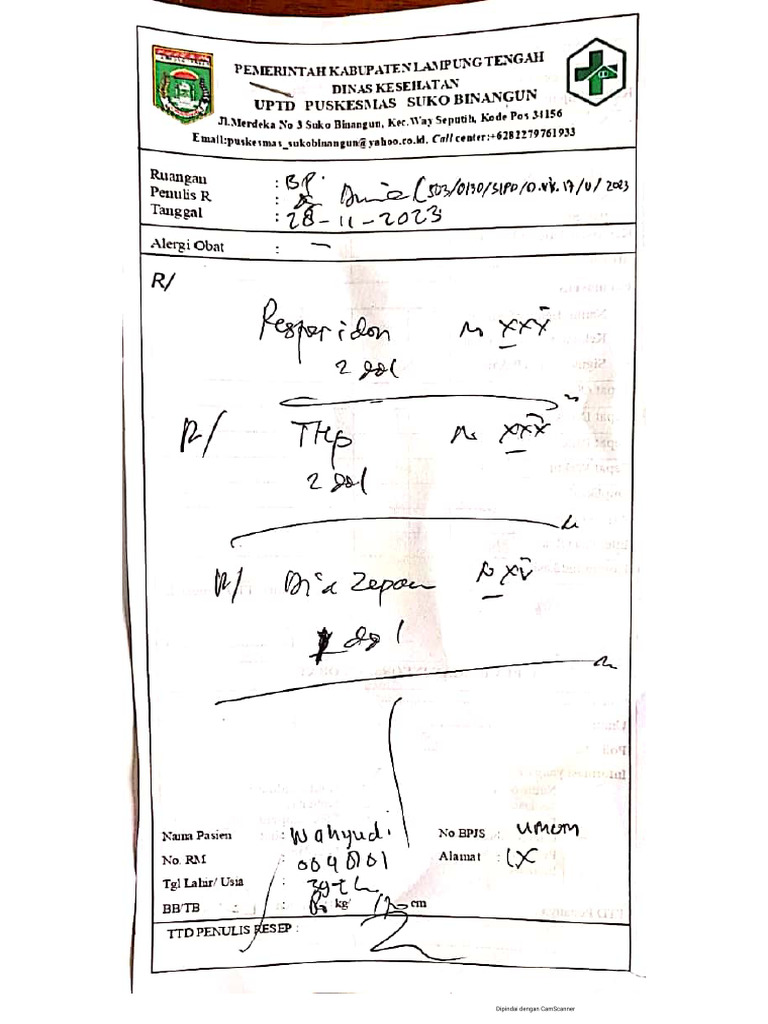 PEMERINTAH KABUPATEN LAMPUNG TENGAH
DINAS KESEHATAN
UPTD PUSKESMAS SUKO BINANGUN
Jl.Merdeka No 3 Suko Binangun, Kec.Way Seputih, Kode Pos 34156
Email:puskesmas_sukobinangun@yahoo.co.id. Call center:+6282279761933
Ruangan : BP.
Penulis R :
Tanggal : 28-11-2023
Alergi Obat : -
R/
Resperidon No XXX
2 dd 1
R/ THP No XXX
2 dd 1
R/ Diazepam No XV
dd 1
Nama Pasien : Wahyudi
No BPJS : umum
No. RM :
Alamat : IX
Tgl Lahir/ Usia : 39 th
BB/TB : kg/ cm
TTD PENULIS RESEP :
Dipindai dengan CamScanner